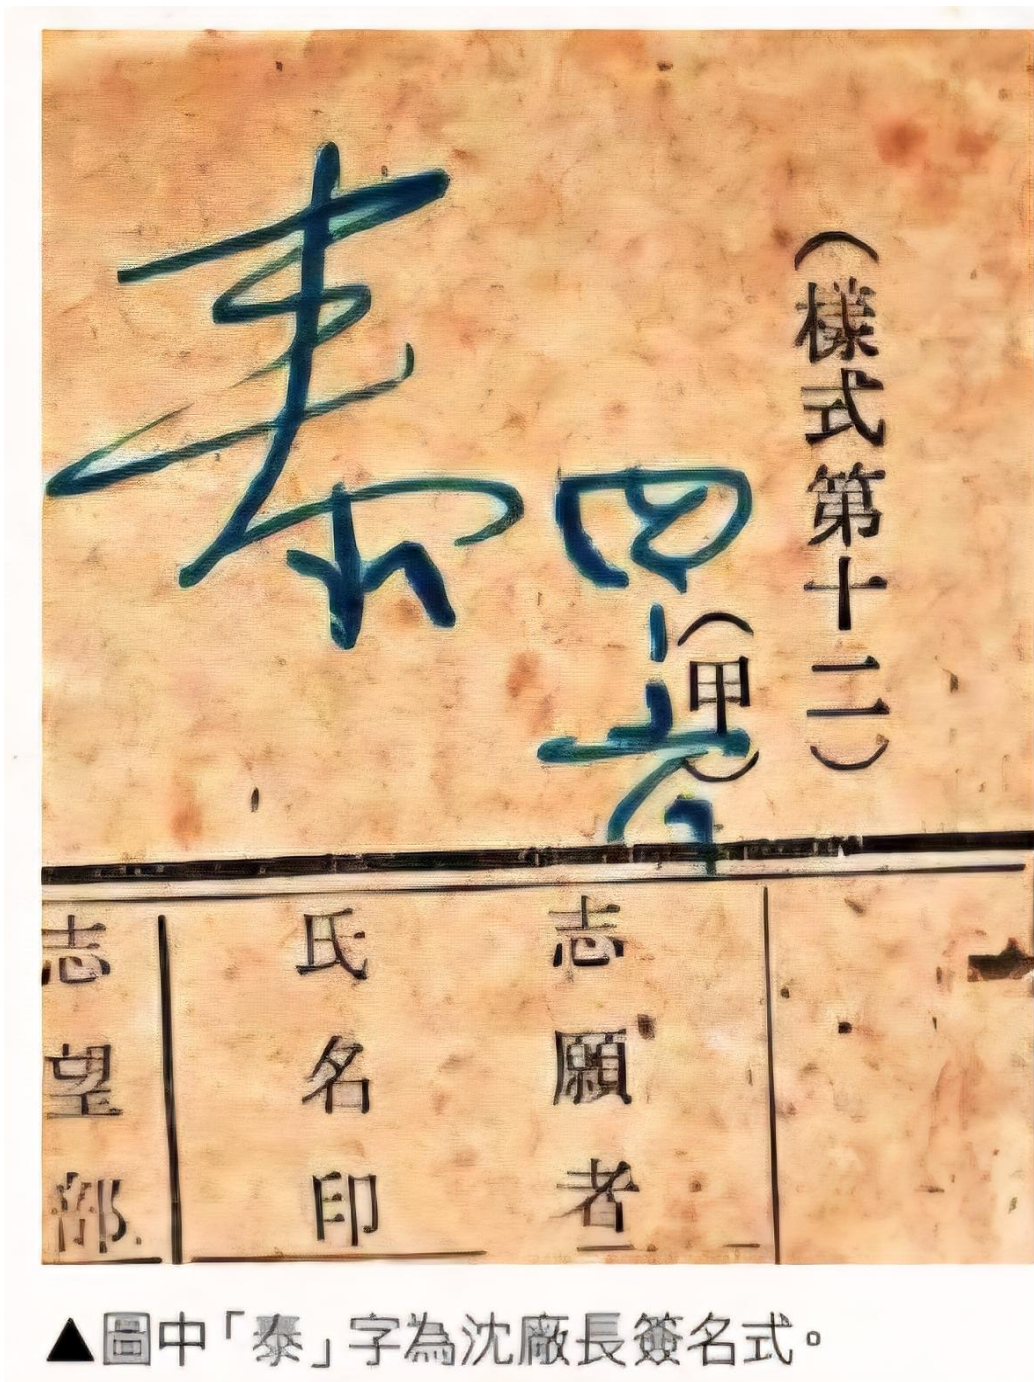 (樣式第十二)
(甲)
泰
志願者
氏名印
志望部
▲圖中「泰」字為沈廠長簽名式。